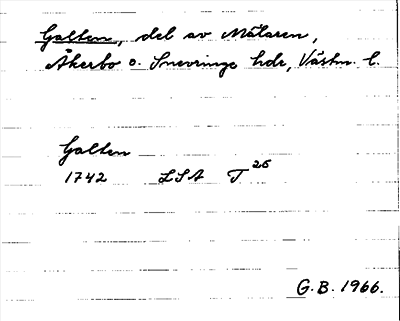 Galten, del av Mälaren,
Åkerbo o. Snevringe hdr, Västm. l.
Galten
1742 LSA T 26
G.B. 1966.